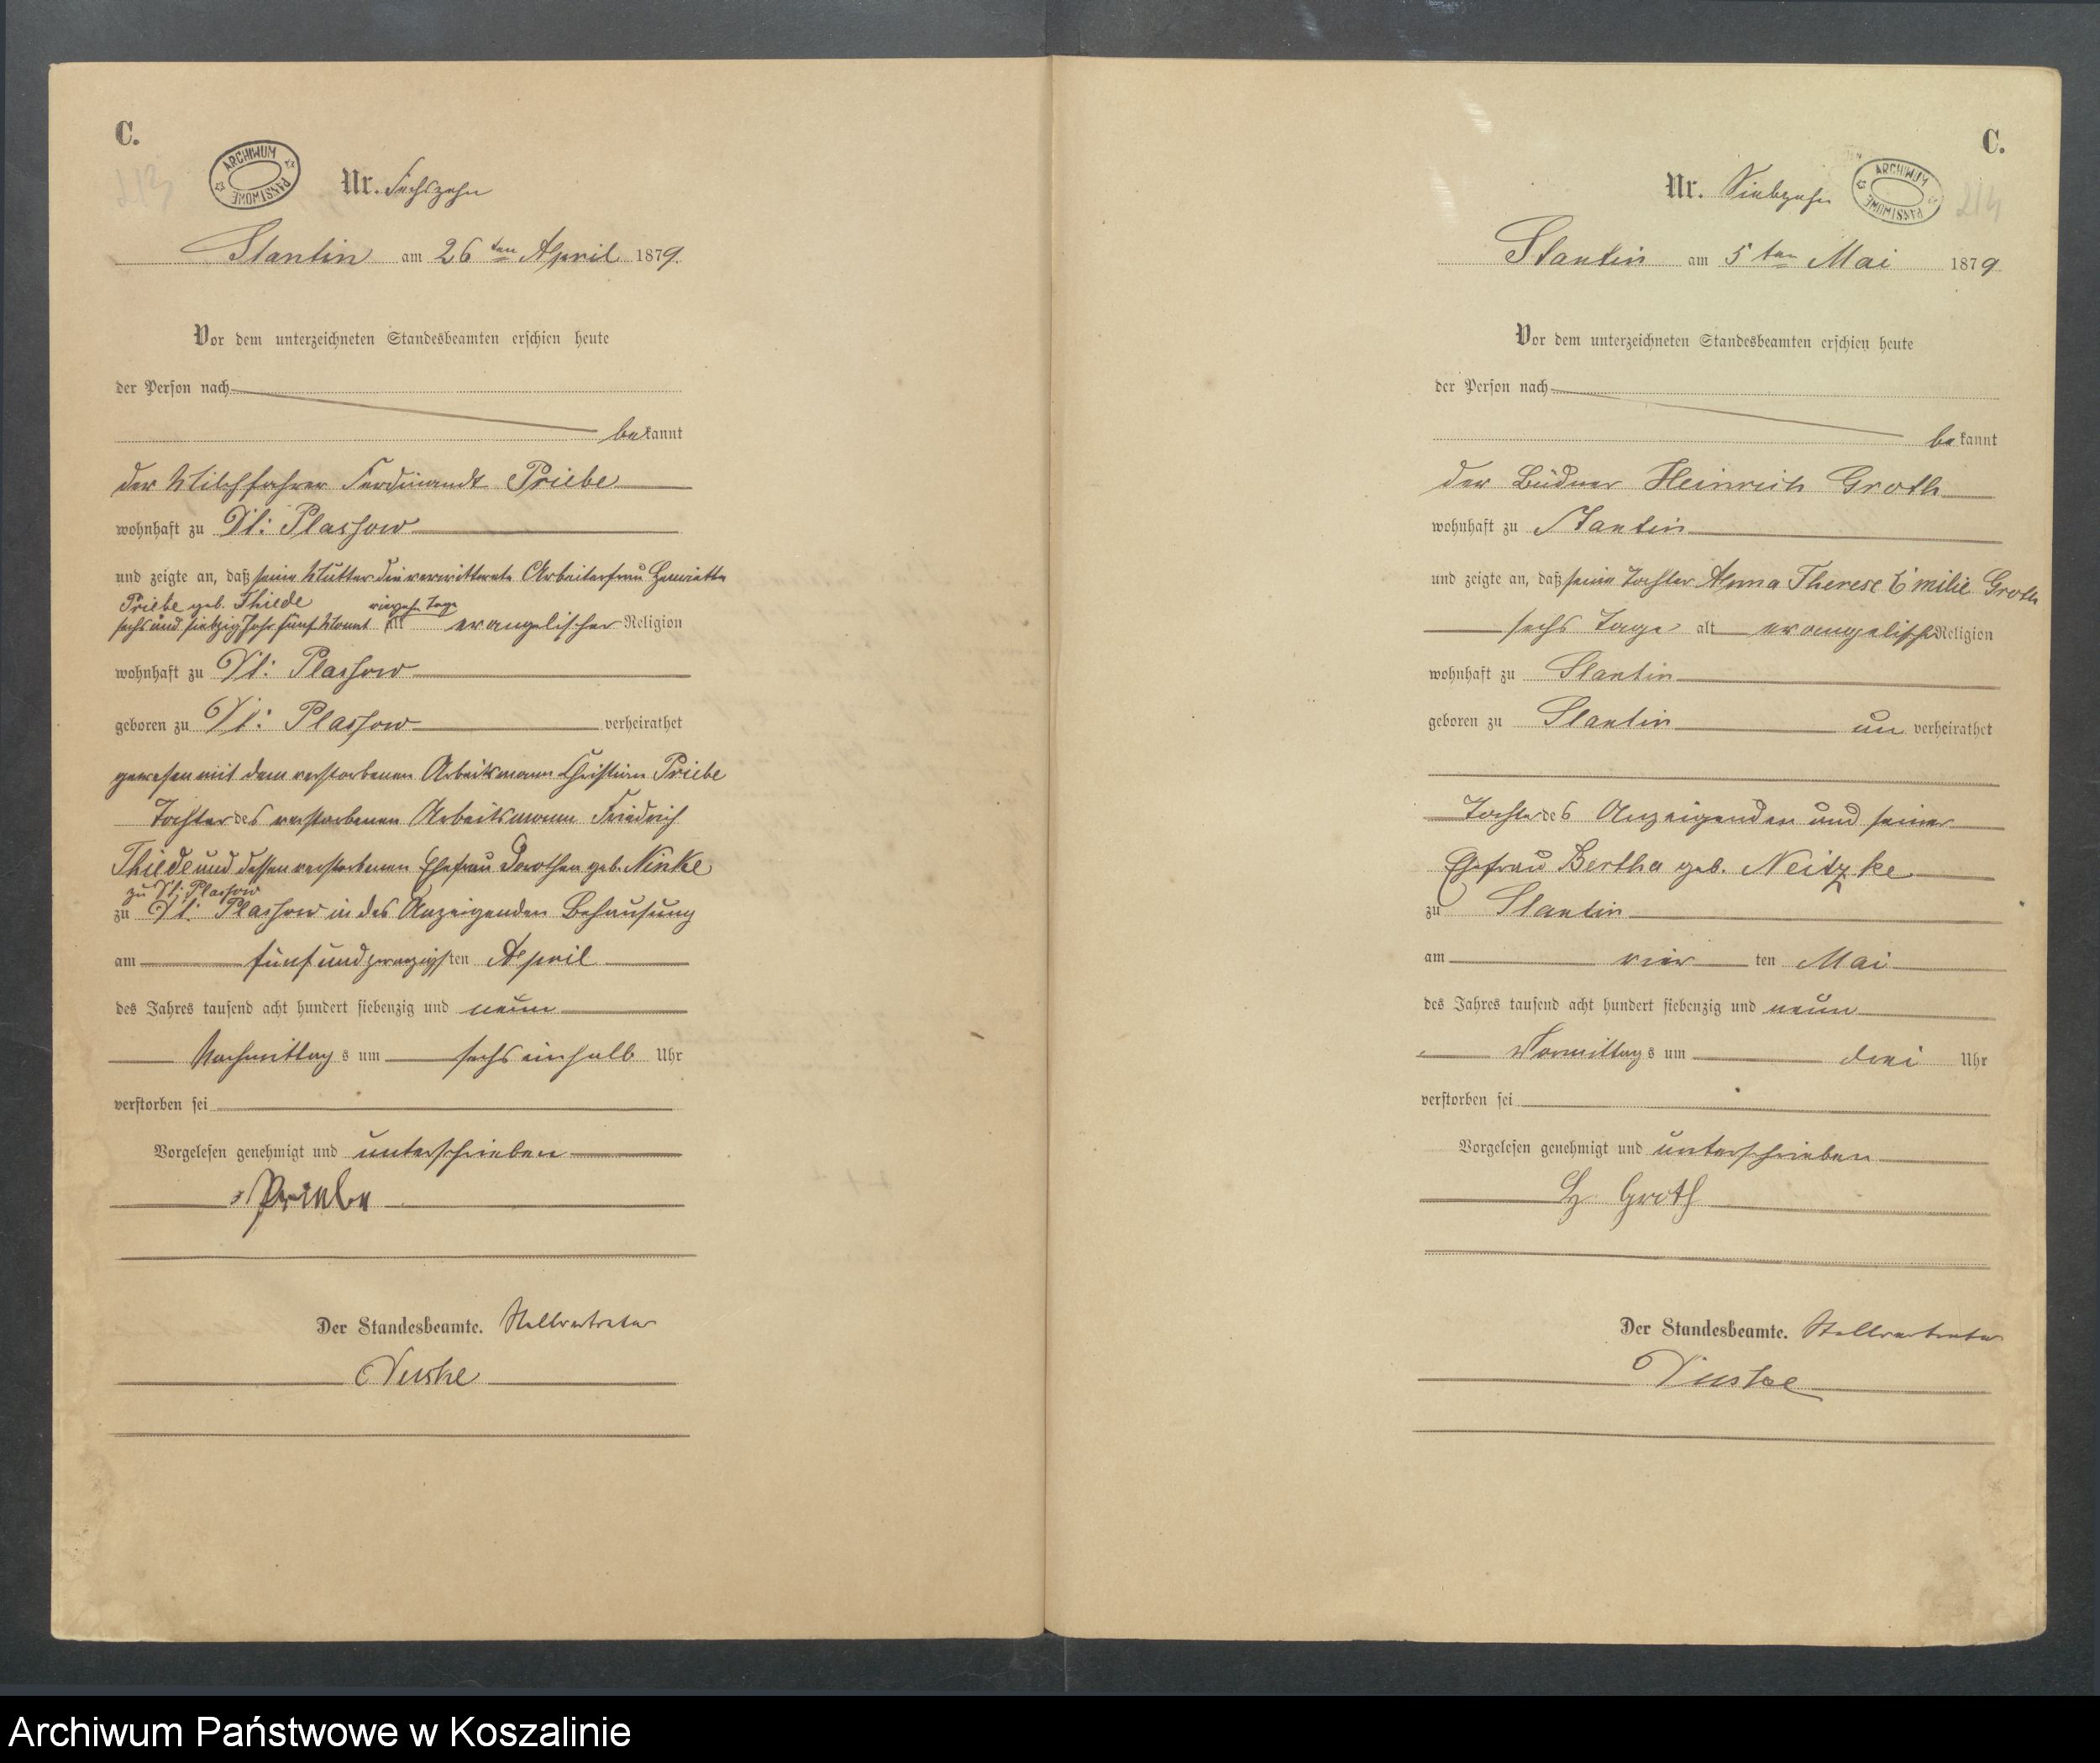 C.
ARCHIWUM PAŃSTWOWE
213
Nr. Sechszehn
Stantin am 26 ten April 1879.
Vor dem unterzeichneten Standesbeamten erschien heute
der Person nach
bekannt
der Milchfahrer Ferdinandt Priebe
wohnhaft zu Dt: Plassow
und zeigte an, daß seine Mutter die verwittwete Arbeiterfrau Henriette
Priebe geb. Thiede
sechs und siebzig Jahr fünf Monat Tage alt evangelischer Religion
wohnhaft zu Dt: Plassow
geboren zu Dt: Plassow verheirathet
gewesen mit dem verstorbenen Arbeitsmann Christian Priebe
Tochter des verstorbenen Arbeitsmann Friedrich
Thiede und dessen verstorbenen Ehefrau Dorothea geb. Ninke
zu Dt: Plassow
zu Dt: Plassow in des Anzeigenden Behausung
am fünf und zwanzigsten April
des Jahres tausend acht hundert siebenzig und neun
Nachmittags um sechs einhalb Uhr
verstorben sei
Vorgelesen genehmigt und unterschrieben
Priebe
Der Standesbeamte. Stellvertreter
C.
ARCHIWUM PAŃSTWOWE
214
Nr. Siebzehn
Stantin am 5 ten Mai 1879.
Vor dem unterzeichneten Standesbeamten erschien heute
der Person nach
bekannt
der Büdner Heinrich Groth
wohnhaft zu Stantin
und zeigte an, daß seine Tochter Anna Therese Emilie Groth
sechs Tage alt evangelischer Religion
wohnhaft zu Stantin
geboren zu Stantin un verheirathet
Tochter des Anzeigenden und seiner
Ehefrau Bertha geb. Neitzke
zu Stantin
am vier ten Mai
des Jahres tausend acht hundert siebenzig und neun
Vormittags um drei Uhr
verstorben sei
Vorgelesen genehmigt und unterschrieben
H Groth
Der Standesbeamte. Stellvertreter
Archiwum Państwowe w Koszalinie